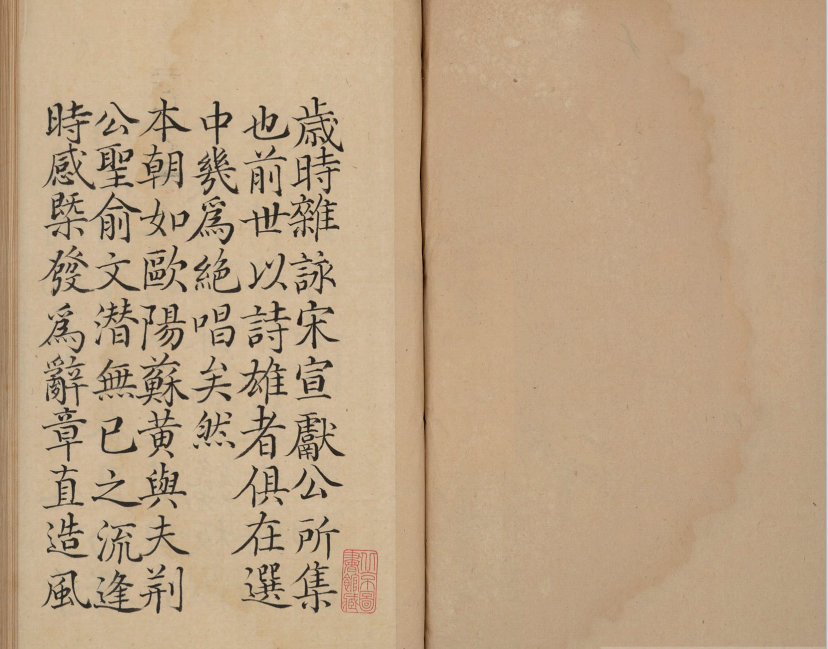 歲時雜詠宋宣獻公所集
也前世以詩雄者俱在選
中幾爲絶唱矣然
本朝如歐陽蘇黃與夫荆
公聖俞文潛無已之流逢
時感槩發爲辭章直造風
北京圖
書館藏